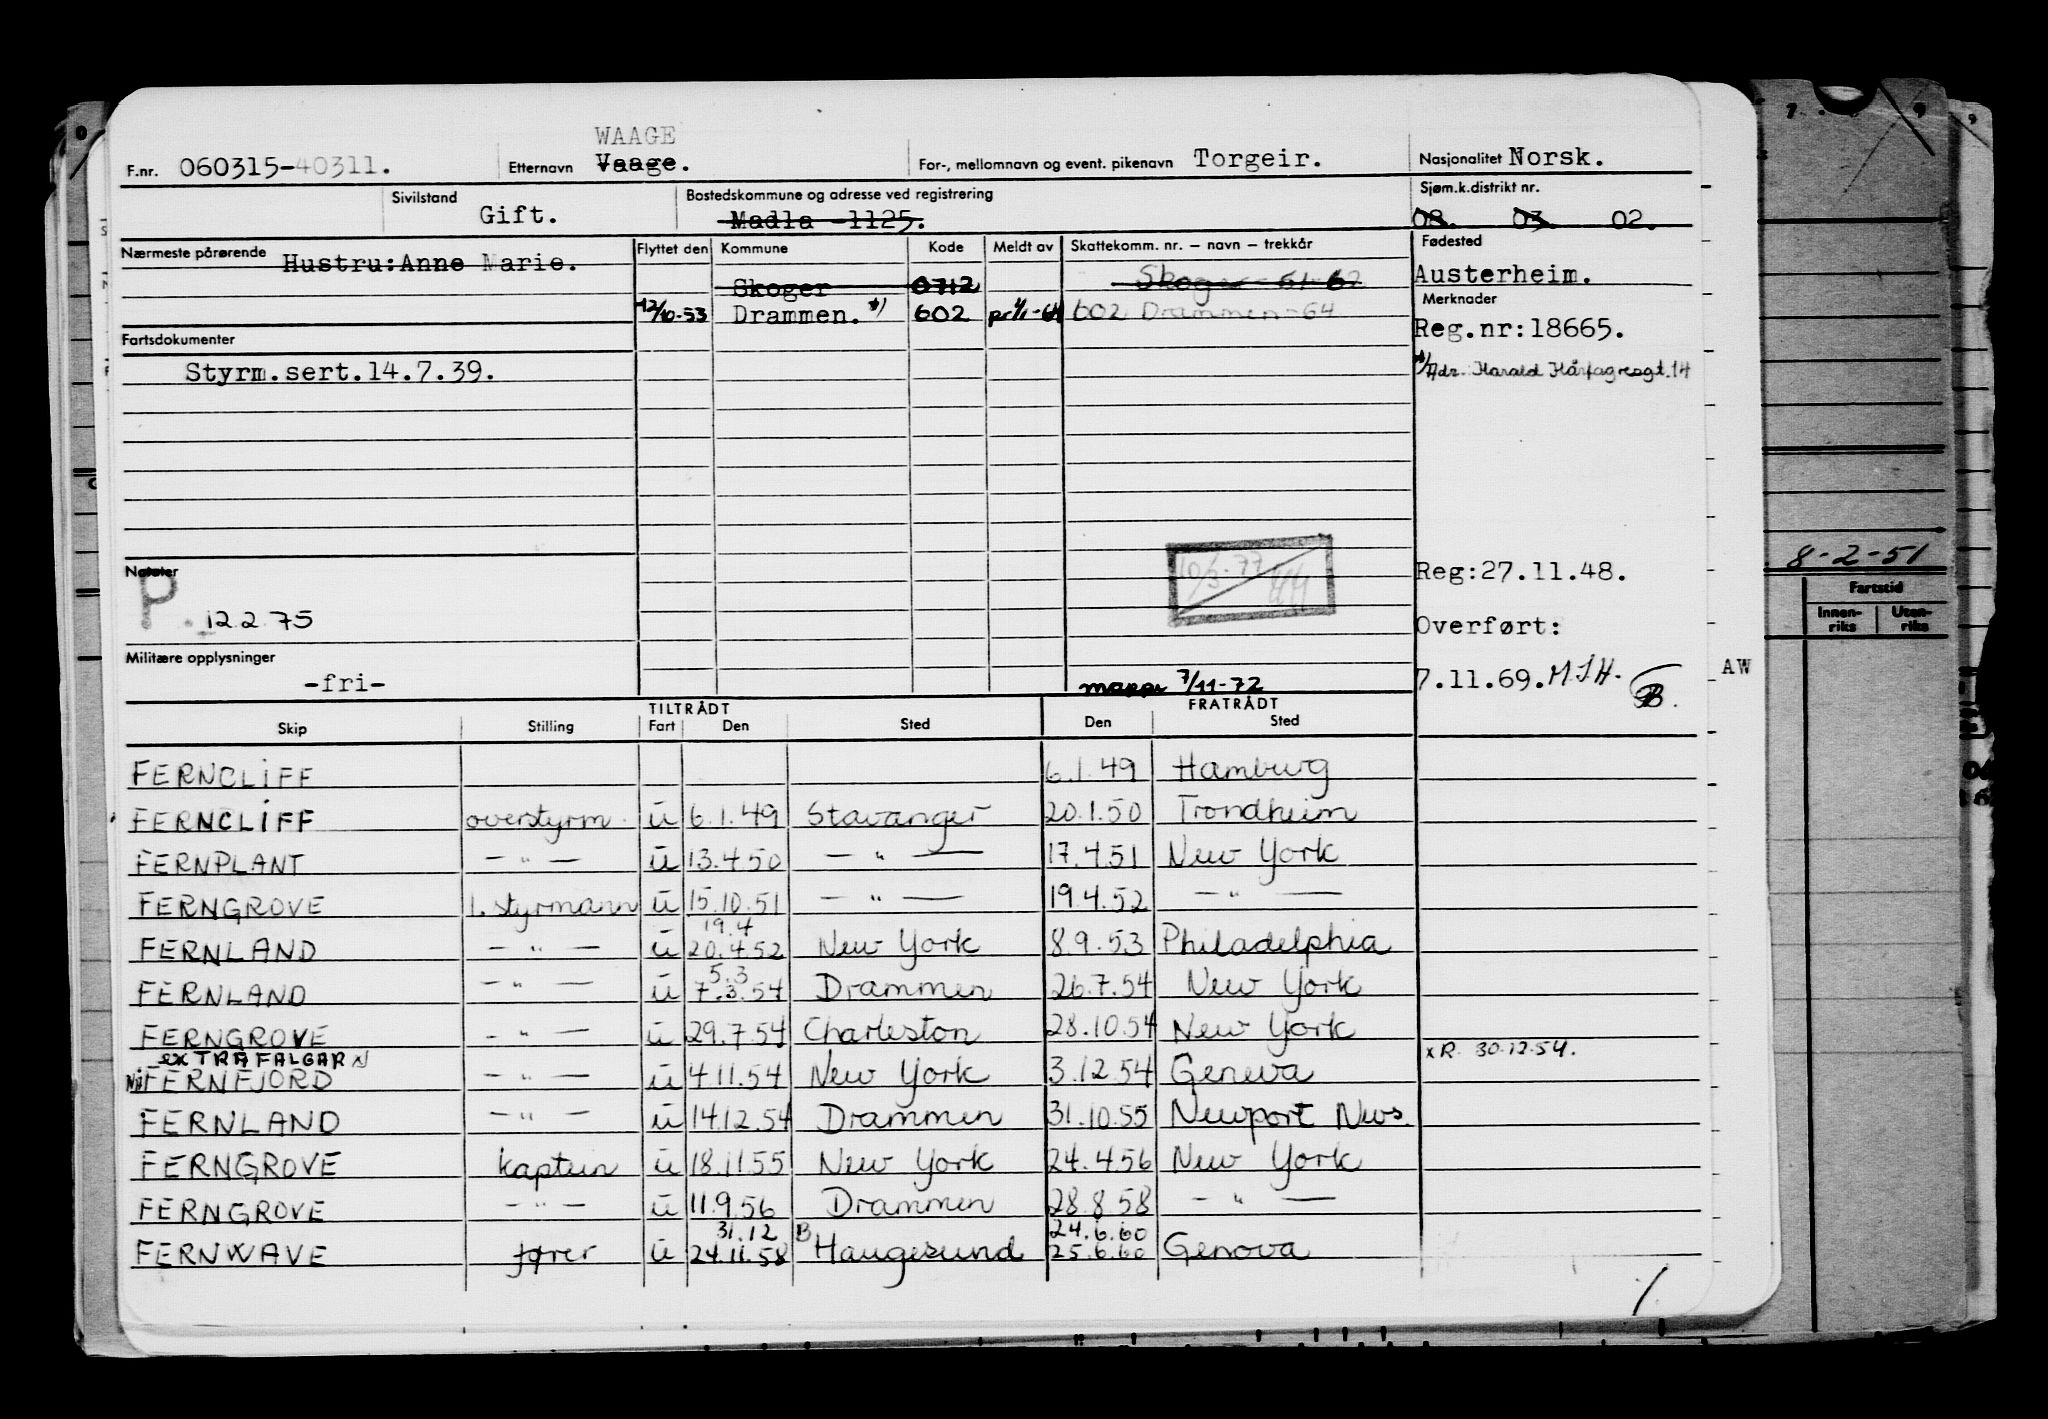 WAAGE
F.nr. 060315-40311. Etternavn Vaage. For-, mellomnavn og event. pikenavn Torgeir. Nasjonalitet Norsk.
Sivilstand Gift. Bostedskommune og adresse ved registrering Madla -1125. Sjøm.k.distrikt nr. 08. 03. 02.
Nærmeste pårørende Hustru:Anne Marie. Flyttet den Kommune Kode Meldt av Skattekomm. nr. – navn – trekkår Fødested
Skoger 0712 Skoger - 61-67 Austerheim.
12/10-53 Drammen. *) 602 pr 1/1-64 602 Drammen-64 Merknader
Reg.nr:18665.
Fartsdokumenter
Styrm.sert.14.7.39. *) Adr. Harald Hårfagresgt. 14
Notater
P. 12.2.75
10/3-77
Reg:27.11.48.
Overført:
Militære opplysninger
-fri-
7/11-72
7.11.69. MJH. B.
AW
TILTRÅDT FRATRÅDT
Skip Stilling Fart Den Sted Den Sted
FERNCLIFF 6.1.49 Hamburg
FERNCLIFF overstyrm. u 6.1.49 Stavanger 20.1.50 Trondheim
FERNPLANT — " — u 13.4.50 — " — 17.4.51 New York
FERNGROVE 1. styrmann u 15.10.51 — " — 19.4.52 — " —
19.4
FERNLAND — " — u 20.4.52 New York 8.9.53 Philadelphia
5.3
FERNLAND — " — u 7.3.54 Drammen 26.7.54 New York
FERNGROVE — " — u 29.7.54 Charleston 28.10.54 New York
ex TRAFALGAR N
Nå FERNFJORD — " — u 4.11.54 New York 3.12.54 Geneva xR. 30.12.54.
FERNLAND — " — u 14.12.54 Drammen 31.10.55 Newport News.
FERNGROVE kaptein u 18.11.55 New York 24.4.56 New York
FERNGROVE — " — u 11.9.56 Drammen 28.8.58 — " —
31.12 B 24.6.60
FERNWAVE fører u 24.11.58 Haugesund 25.6.60 Genova
1.
8-2-51
Fartstid
Innen-riks Uten-riks